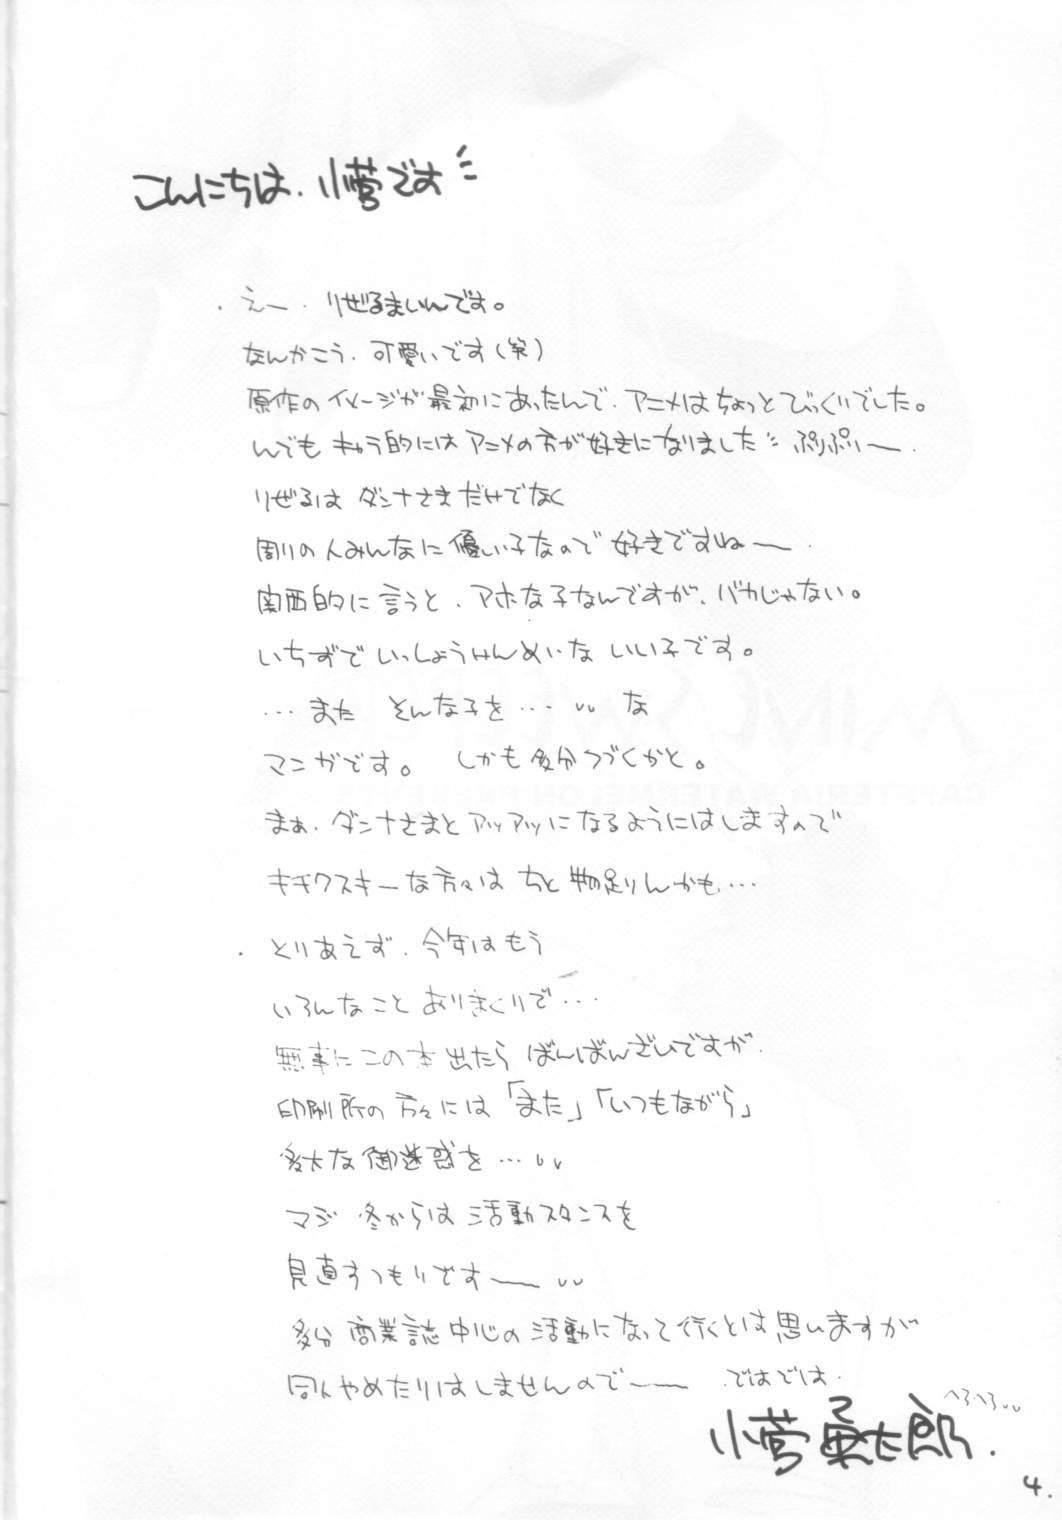 こんにちは、小菅です
・えー、りぜるまいんです。
なんかこう、可愛いです(笑)
原作のイメージが最初にあったんで、アニメはちょっとびっくりでした。
んでも キャラ的にはアニメの方が好きになりました ぷりぷりー
りぜるは ダンナさまだけでなく
周りの人みんなに優しい子なので好きですねー
関西的に言うと、アホな子なんですが、バカじゃない。
いちずで いっしょうけんめいな いい子です。
…また そんな子を… な
マンガです。 しかも多分つづくかと。
まぁ、ダンナさまとアツアツになるようにはしますので
キチクスキーな方々は ちと物足りんかも…
・とりあえず、今年はもう
いろんなこと ありまくりで…
無事にこの本出たら ばんばんざいですが、
印刷所の方々には「また」「いつもながら」
多大な御迷惑を…
マジ 冬からは 活動スタンスを
見直すつもりですー
多分 商業誌中心の活動になって行くとは思いますが
同人やめたりはしませんのでー ではでは
へろへろ
小菅勇太郎.
4.